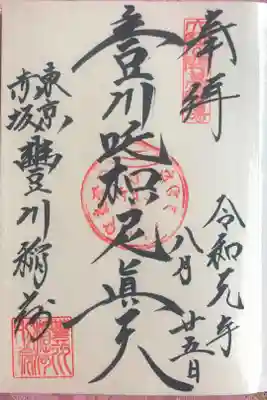 奉拝
令和元年
八月廿五日
豊川吒枳尼眞天
東京
赤坂豊川稲荷